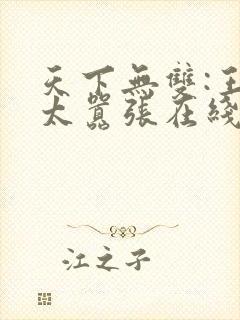 天下無雙:王
太囂張在綫
江之子